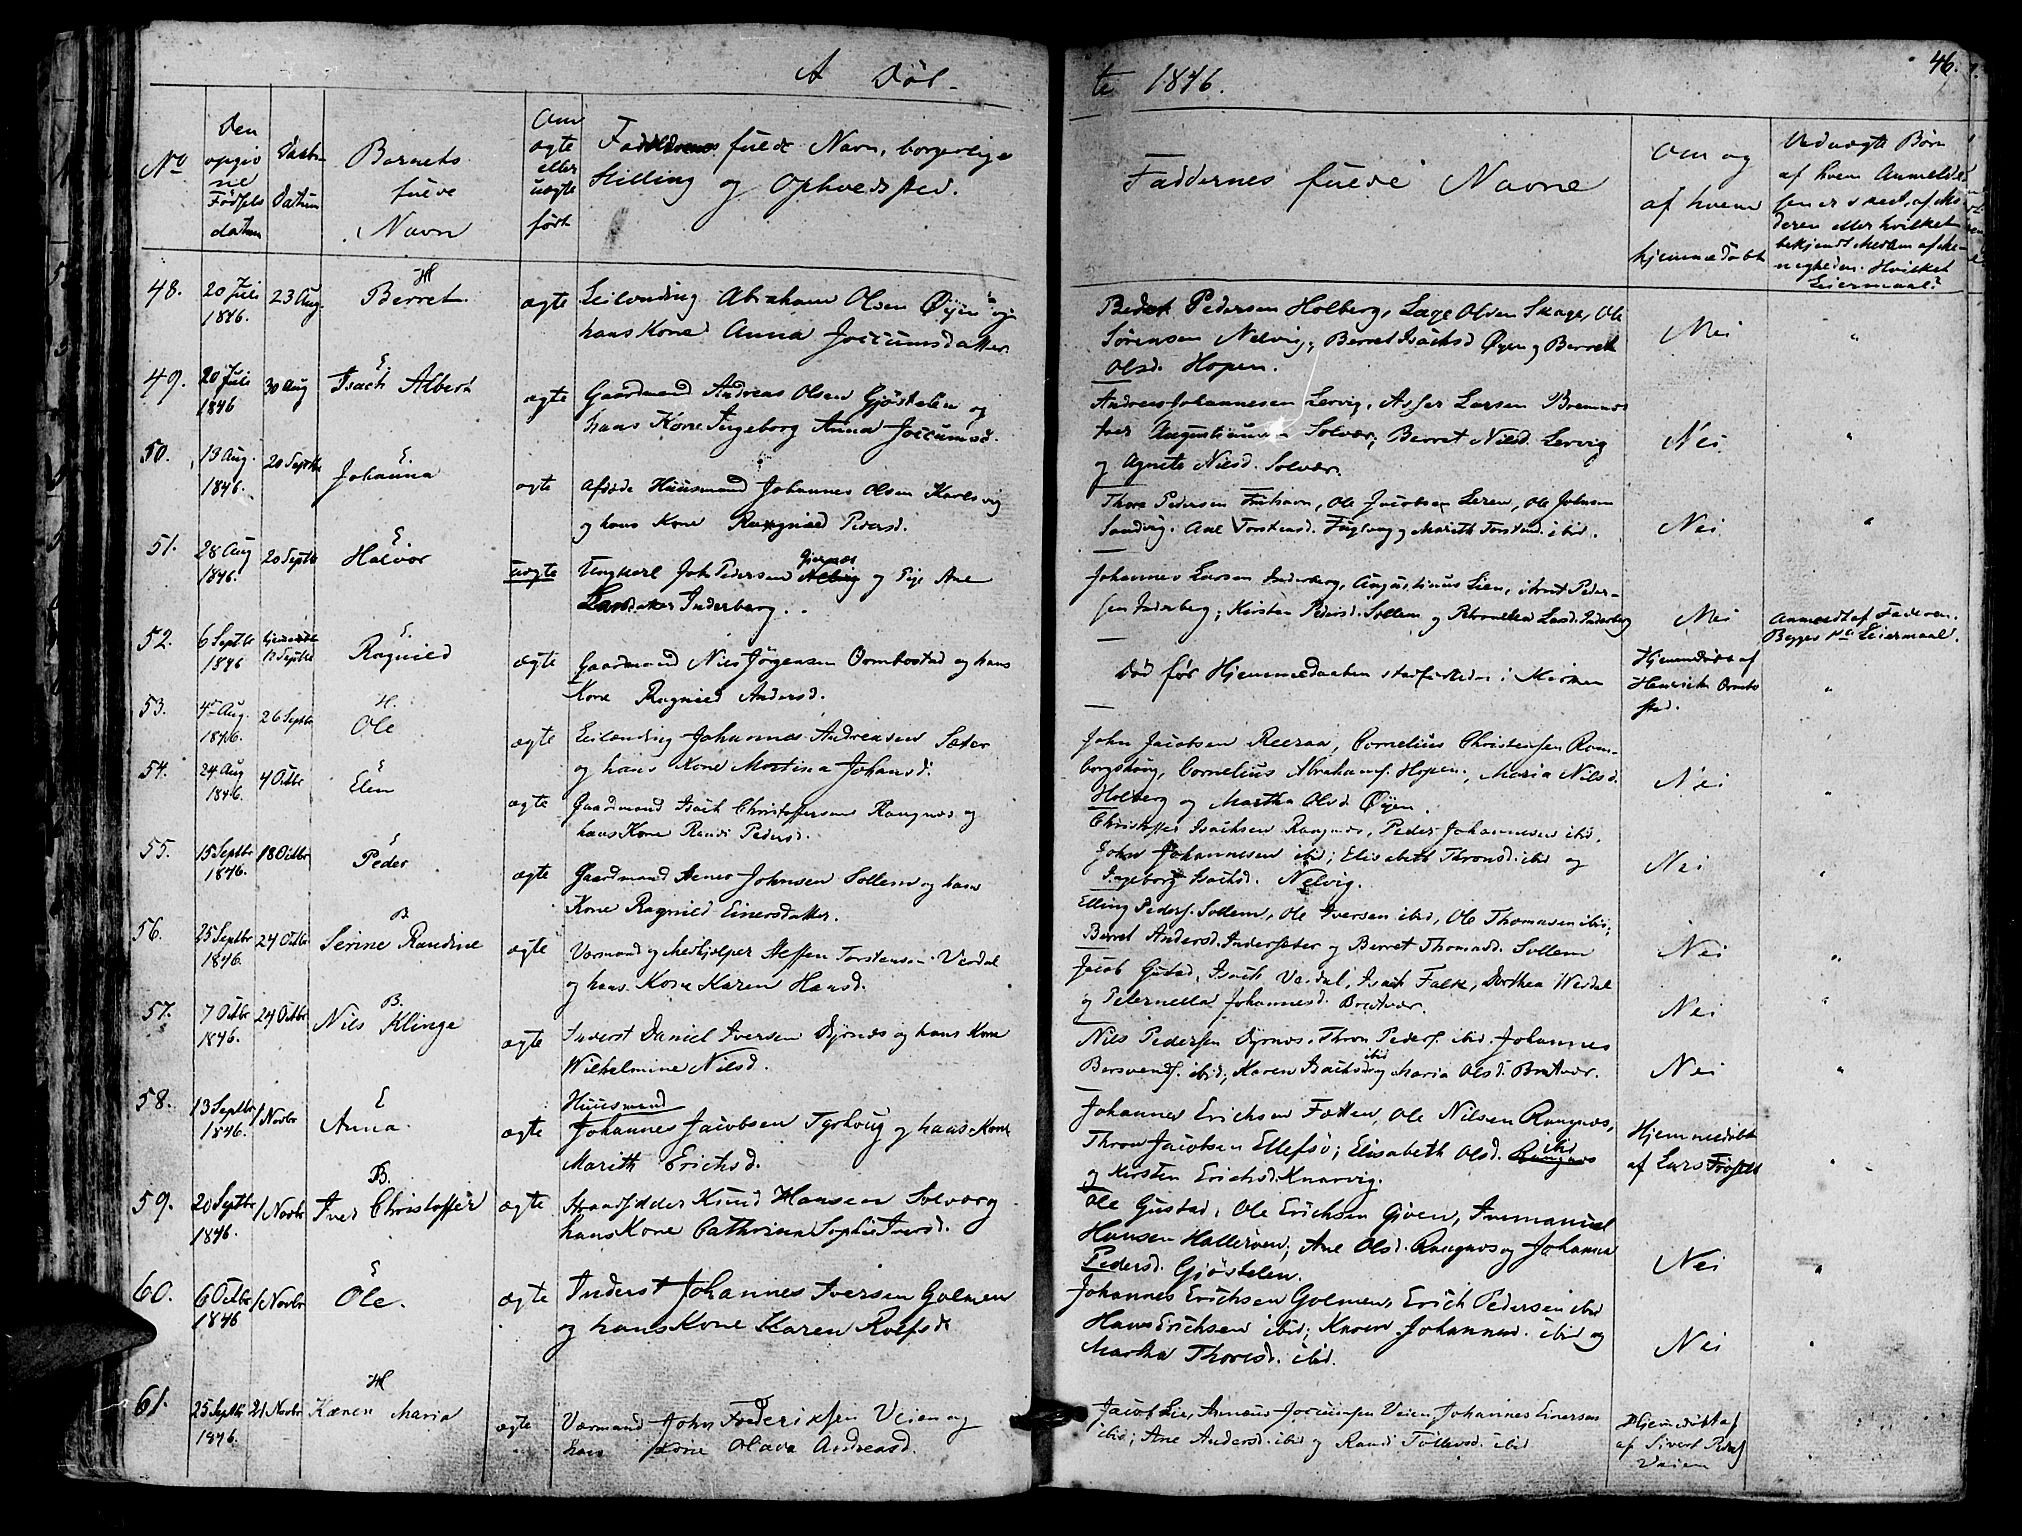 A Døb-
te 1846.
46.
No
Den opgivne Fødsels datum
Daabs Datum
Barnets fulde Navn
Om ægte eller uægte født
Forældrenes fulde Navn, borgerlige
Stilling og Opholdsted.
Faddernes fulde Navne
Om og af hvem hjemmedøbt
Ved uægte Børn
af hvem Anmeldel
sen er skeet, af Mo
deren eller hvilket
bekjendt Medlem af Me-
nigheden. Hvilket
Leiermaal?
48. 20 Juli 1846. 23 Aug. H Berret ægte
Leilending Abraham Olsen Øyen og
hans Kone Anna Joccumsdatter.
Pedersen Holberg, Lage Olsen Skage, Ole
Sørensen Nelvig, Berret Isachsd Øyen og Berret
Olsd. Hopen.
Nei "
49. 20 Juli 1846 30 Aug E. Isach Albert ægte
Gaardmand Andreas Olsen Gjøstelen og
hans Kone Ingeborg Anna Joccumsd.
Andreas Johannesen Lervig, Asser Larsen Bremnes
Solvær; Berret Nilsd. Lervig
og Agnete Nilsd. Solvær.
Nei. "
50. 13 Aug. 1846. 20 Septbr E. Johanna ægte
Afdøde Huusmand Johannes Olsen Karlsvig
og hans Kone Ragnild Pedersd.
Thore Pedersen Fuhavn, Ole Jacobsen Leren, Ole Johnsen
Sandvig. Ane Torstensd. Fuglvog og Marith Torstensd. ibid.
Nei "
51. 28 Aug 1846. 20 Septbr E Halvor uægte
Ungkarl Joh. Pedersen Gjernes og Pige Ane
Larsdatter Inderberg.
Johannes Larsen Inderberg, Augustinus Lien, Arnt Peder-
sen Inderberg; Kirsten Pedersd. Sollem og Petronella Larsd. Inderberg
Nei Anmeldt af Faderen.
Begges 1ste Leiermaal.
52. 6 Septbr 1846 13 Septbr E. Ragnild ægte
Gaardmand Nils Jørgensen Ormbostad og hans
Kone Ragnild Andersd.
Død før Hjemmedaaben stadfæstedes i Kirken
Hjemmedøbt af
Henrik Ormbo
stad. "
53. 4de Aug. 1846. 26 Septbr H. Ole ægte
Leilending Johannes Andreasen Sæter
og hans Kone Martina Johansd.
John Jacobsen Reeraa, Cornelius Christensen Ram-
borgshoug, Cornelius Abrahams. Hopen, Maria Nilsd.
Holberg og Martha Olsd. Øyen.
Nei "
54. 24 Aug 1846. 4 Octbr E Elen ægte
Gaardmand Isach Christoffersen Rangnes og
hans Kone Randi Pedersd.
Christoffer Isachsen Rangnes, Peder Johannesen ibid,
John Johannesen ibid; Elisabeth Thronsd. ibid og
Ingeborg Isachsd. Nelvig.
Nei "
55. 15 Septbr 1846. 18 Octbr E Peder ægte
Gaardmand Arnes Johnsen Sollem og hans
Kone Ragnild Einersdatter.
Elling Peders. Sollem, Ole Iversen ibid, Ole Thomasen ibid;
Berret Andersd. Indersæter og Berret Thomasd. Sollem
Nei "
56. 25 Septbr 1846. 24 Octbr B Serine Randine ægte
Værmand og Medhjælper Steffen Torstensen Værdal
og hans Kone Karen Hansd.
Jacob Gustad, Isach Værdal, Isach Falk, Dorthea Værdal
og Petternella Johannesd. Bratvær.
Nei "
57. 7 Octbr 1846. 24 Octbr B. Nils Klinge ægte
Inderst Daniel Iversen Dyrnes og hans Kone
Wilhelmine Nilsd.
Nils Pedersen Dyrnes, Thron Peders. ibid. Johannes
Børsvends. ibid; Karen Isachsd. ibid og Maria Olsd. Bratvær.
Nei "
58. 13 Septbr 1846. 1 Novbr E Anna. ægte
Huusmand
Johannes Jacobsen Tyrhoug og hans Kone
Marith Erichsd.
Johannes Erichsen Fætten, Ole Nilsen Rangnes,
Thron Jacobsen Ellefsø; Elisabeth Olsd. ibid
og Kirsten Erichsd. Knarvig.
Hjemmedøbt
af Lars Frostad "
59. 20 Septbr 1846. 1 Novbr B. Iver Christoffer ægte
Strandsidder Knud Hansen Solvær og
hans Kone Cathrina Sophie Iversd.
Ole Gustad, Ole Erichsen Gjøen, Immanuel
Hansen Hallerøen, Ane Olsd. Rangnes og Johanna
Pedersd. Gjøstelen.
Nei "
60. 6 Octbr 1846 1 Novbr E Ole. ægte
Inderst Johannes Iversen Golmen
og hans Kone Karen Rolfsd.
Johannes Erichsen Golmen, Erich Pedersen ibid
Hans Erichsen ibid; Karen Johannesd. ibid og
Martha Thoresd. ibid.
Nei "
61. 25 Septbr 1846. 21 Novbr H Karen Maria ægte
Værmand John Frederiksen Veien og
hans Kone Olava Andreasd.
Jacob Lie, Arnæus Jocumsen Veien, Johannes Einersen
ibid; Ane Andersd. ibid og Randi Tollevsd. ibid
Hjemmedøbt af
af Sivert Peders
Veien "